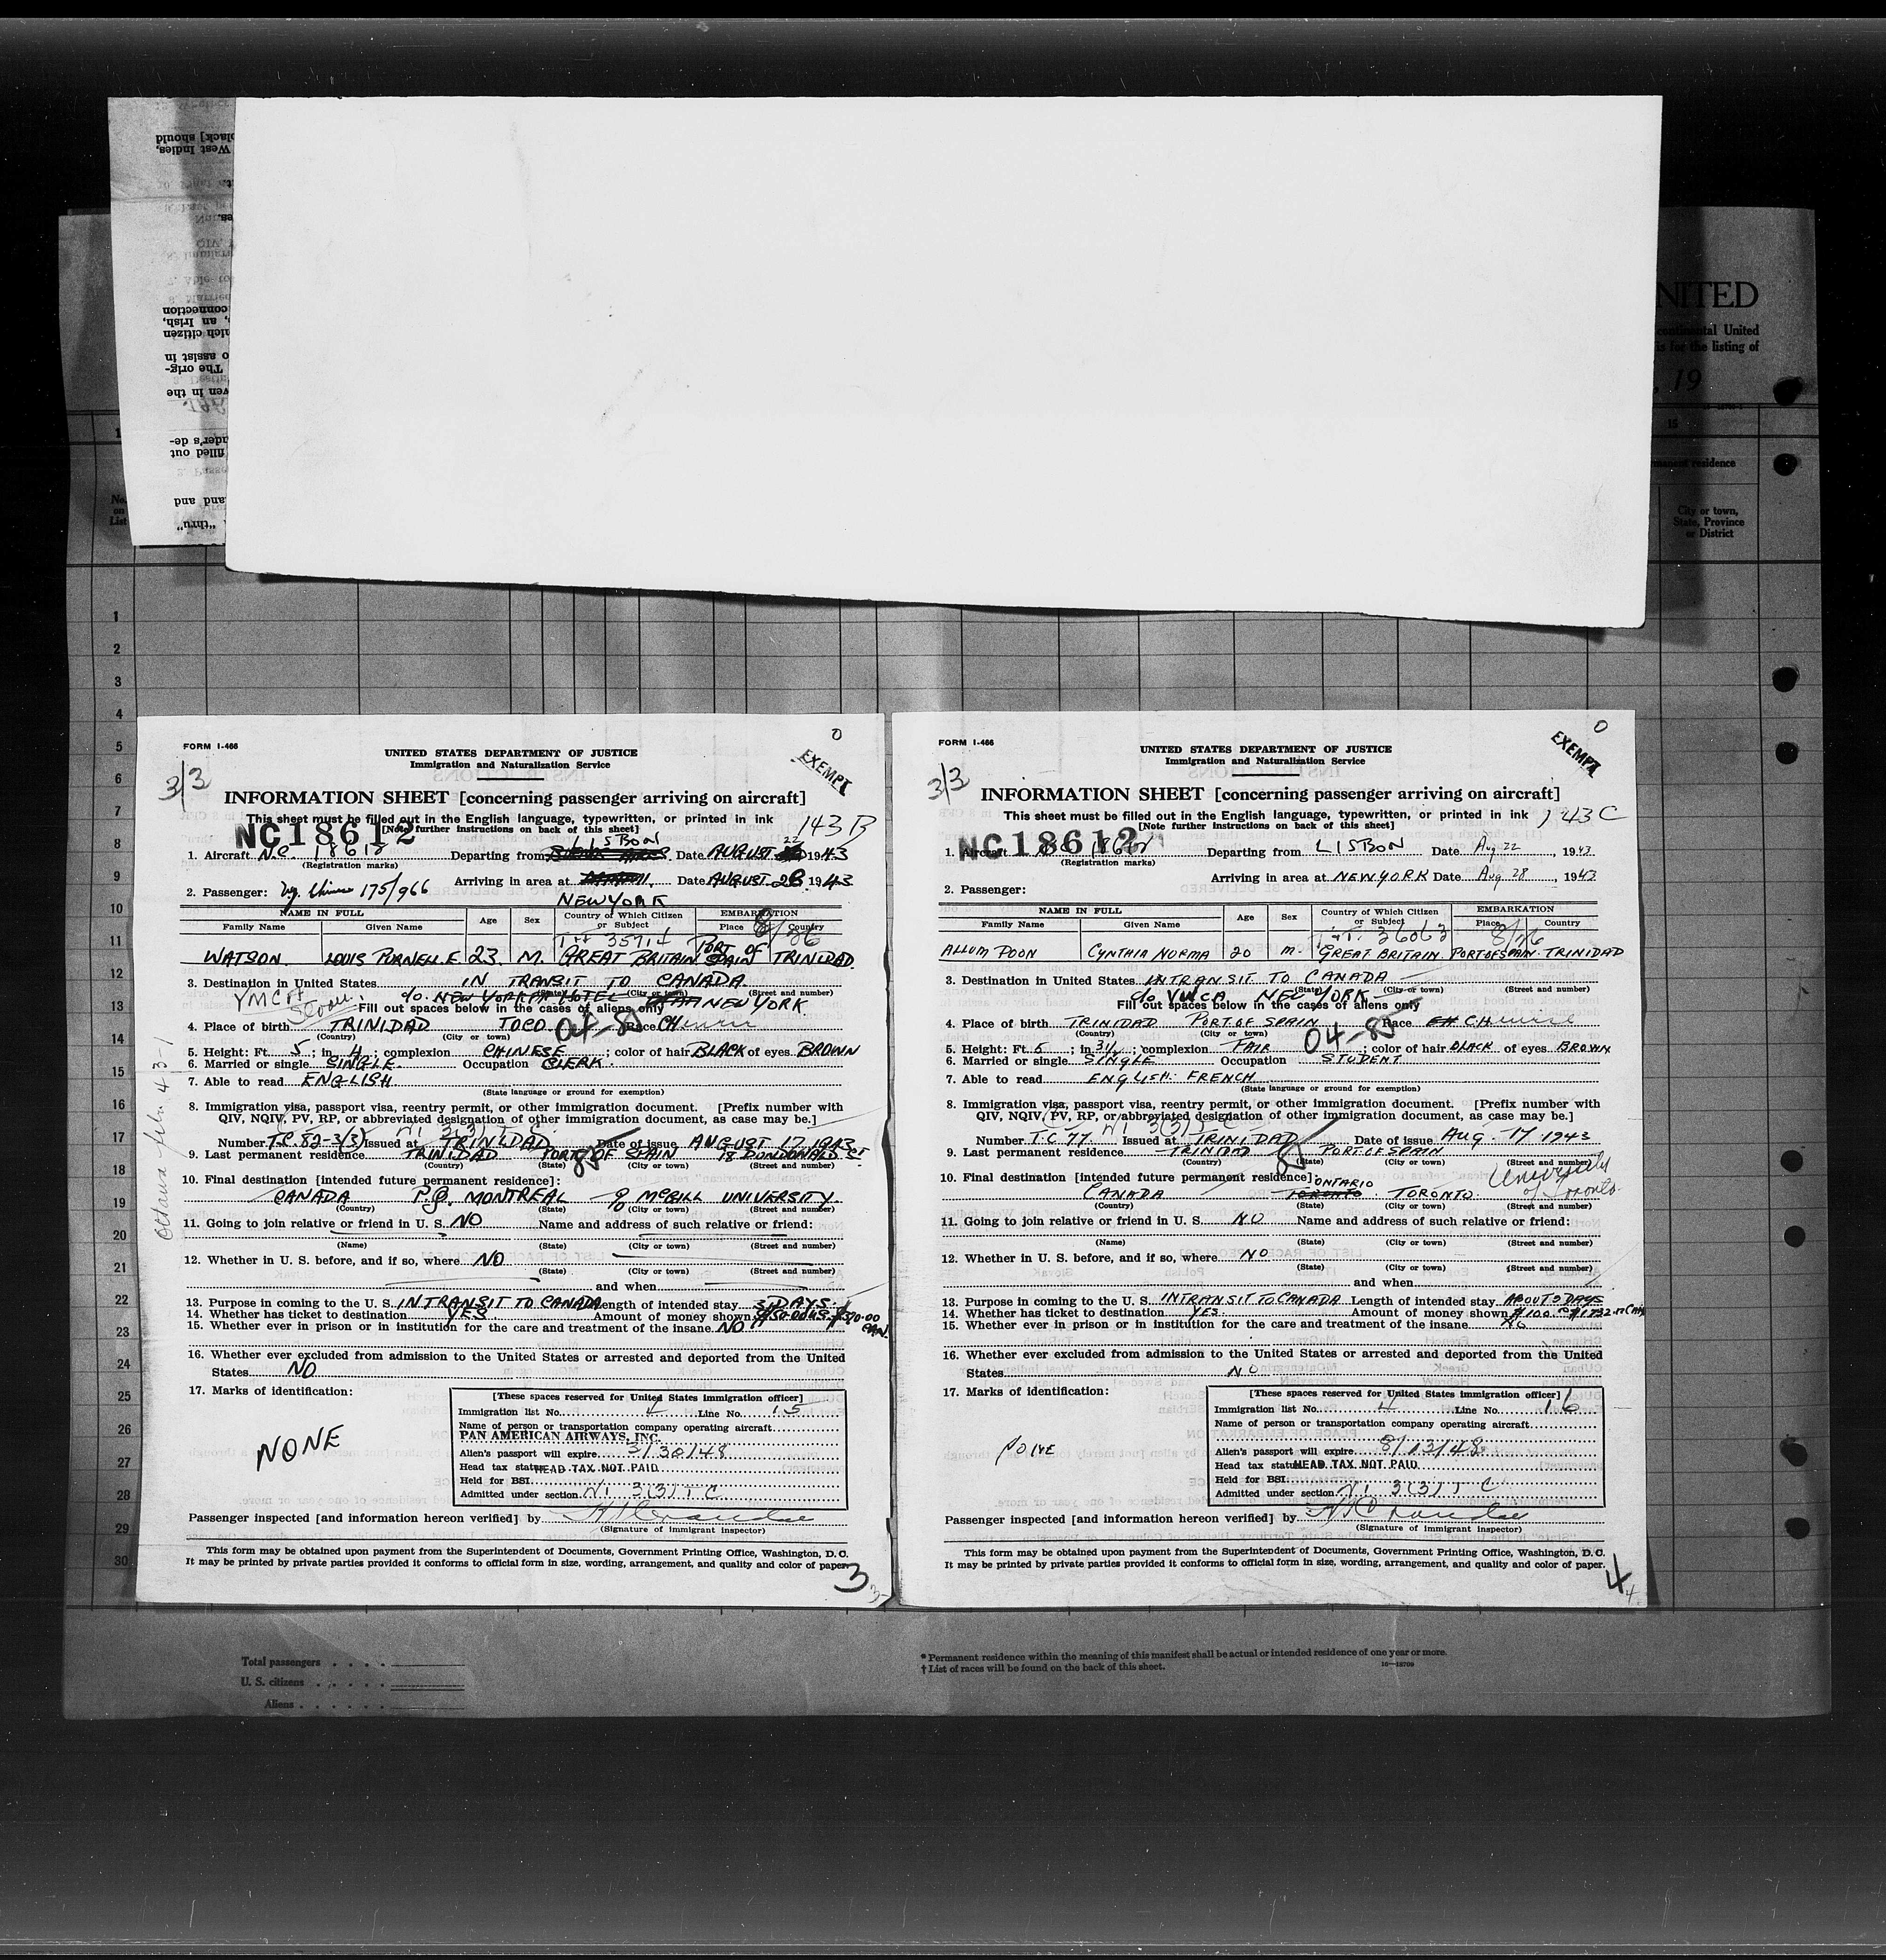 NITED
continental United
is for the listing of
, 19
15
manent residence
No.
on
List
City or town,
State, Province
or District
1
2
3
4
5
6
7
8
9
10
11
12
13
14
15
16
17
18
19
20
21
22
23
24
25
26
27
28
29
30
FORM I-466
0
EXEMPT
UNITED STATES DEPARTMENT OF JUSTICE
Immigration and Naturalization Service
3/3
INFORMATION SHEET [concerning passenger arriving on aircraft]
This sheet must be filled out in the English language, typewritten, or printed in ink 143 B
NC18612 [Note further instructions on back of this sheet]
1. Aircraft N.C. 18612 Departing from LISBON Date AUGUST 22 1943
(Registration marks)
Arriving in area at NEW YORK Date AUGUST 28 1943
2. Passenger: 175/966
NAME IN FULL Age Sex Country of Which Citizen or Subject EMBARKATION
Family Name Given Name Place Country
35914 8/26
WATSON LOUIS PURNELLE 23 M. GREAT BRITAIN PORT OF SPAIN TRINIDAD
3. Destination in United States IN TRANSIT TO CANADA
(State) (City or town) (Street and number)
YMCA Sloan c/o NEW YORKER HOTEL NEW YORK
Fill out spaces below in the cases of aliens only
4. Place of birth TRINIDAD TOCO 04-85 Race CHinese
(Country) (City or town)
5. Height: Ft. 5; in. 4; complexion CHINESE; color of hair BLACK of eyes BROWN
6. Married or single SINGLE. Occupation CLERK.
7. Able to read ENGLISH
(State language or ground for exemption)
8. Immigration visa, passport visa, reentry permit, or other immigration document. [Prefix number with
QIV, NQIV, PV, RP, or abbreviated designation of other immigration document, as case may be.]
3(3) T C
Number T.C. 82-3(3) Issued at TRINIDAD Date of issue AUGUST 17 1943
9. Last permanent residence TRINIDAD PORT OF SPAIN 18 DONDONALD ST
(Country) (State) (City or town) (Street and number)
85
10. Final destination [intended future permanent residence]:
CANADA P.Q. MONTREAL % McGILL UNIVERSITY
(Country) (State) (City or town) (Street and number)
11. Going to join relative or friend in U. S. NO Name and address of such relative or friend:
(Name) (State) (City or town) (Street and number)
12. Whether in U. S. before, and if so, where NO
(State) (City or town) (Street and number)
and when
13. Purpose in coming to the U. S. IN TRANSIT TO CANADA Length of intended stay 3 DAYS
14. Whether has ticket to destination YES Amount of money shown
15. Whether ever in prison or in institution for the care and treatment of the insane NO
16. Whether ever excluded from admission to the United States or arrested and deported from the United
States NO
17. Marks of identification:
NONE
[These spaces reserved for United States immigration officer]
Immigration list No. 4 Line No. 15
Name of person or transportation company operating aircraft
PAN AMERICAN AIRWAYS, INC.
Alien's passport will expire 3/30/48
Head tax status HEAD TAX NOT PAID
Held for BSI
Admitted under section 3(3) T C
Passenger inspected [and information hereon verified] by
(Signature of immigrant inspector)
This form may be obtained upon payment from the Superintendent of Documents, Government Printing Office, Washington, D. C.
It may be printed by private parties provided it conforms to official form in size, wording, arrangement, and quality and color of paper.
3
FORM I-466
0
EXEMPT
UNITED STATES DEPARTMENT OF JUSTICE
Immigration and Naturalization Service
3/3
INFORMATION SHEET [concerning passenger arriving on aircraft]
This sheet must be filled out in the English language, typewritten, or printed in ink 143 C
[Note further instructions on back of this sheet]
NC18612
1. Aircraft Departing from LISBON Date Aug 22, 1943
(Registration marks)
Arriving in area at NEW YORK Date Aug 28, 1943
2. Passenger:
NAME IN FULL Age Sex Country of Which Citizen or Subject EMBARKATION
Family Name Given Name Place Country
36063 8/26
ALLUM POON CYNTHIA NORMA 20 m. GREAT BRITAIN PORT OF SPAIN TRINIDAD
3. Destination in United States INTRANSIT TO CANADA
(State) (City or town) (Street and number)
c/o YWCA NEW YORK
Fill out spaces below in the cases of aliens only
4. Place of birth TRINIDAD PORT OF SPAIN Race CHinese
(Country) (City or town)
04-85
5. Height: Ft. 5; in. 3½; complexion FAIR; color of hair BLACK of eyes BROWN
6. Married or single SINGLE Occupation STUDENT
7. Able to read ENGLISH: FRENCH
(State language or ground for exemption)
8. Immigration visa, passport visa, reentry permit, or other immigration document. [Prefix number with
QIV, NQIV, PV, RP, or abbreviated designation of other immigration document, as case may be.]
3(3) T C
Number T.C 77 Issued at TRINIDAD Date of issue Aug. 17 1943
9. Last permanent residence TRINIDAD PORT OF SPAIN
(Country) (State) (City or town) (Street and number)
85
10. Final destination [intended future permanent residence]
CANADA ONTARIO TORONTO. University of Toronto.
(Country) (State) (City or town) (Street and number)
11. Going to join relative or friend in U. S. NO Name and address of such relative or friend:
(Name) (State) (City or town) (Street and number)
12. Whether in U. S. before, and if so, where NO
(State) (City or town) (Street and number)
and when
13. Purpose in coming to the U. S. INTRANSIT TO CANADA Length of intended stay ABOUT 3 DAYS
14. Whether has ticket to destination YES. Amount of money shown
15. Whether ever in prison or in institution for the care and treatment of the insane No
16. Whether ever excluded from admission to the United States or arrested and deported from the United
States NO
17. Marks of identification:
NONE
[These spaces reserved for United States immigration officer]
Immigration list No. 4 Line No. 16
Name of person or transportation company operating aircraft
Alien's passport will expire 8/13/48
Head tax status HEAD TAX NOT PAID
Held for BSI
Admitted under section 3(3) T C
Passenger inspected [and information hereon verified] by
(Signature of immigrant inspector)
This form may be obtained upon payment from the Superintendent of Documents, Government Printing Office, Washington, D. C.
It may be printed by private parties provided it conforms to official form in size, wording, arrangement, and quality and color of paper.
4
Total passengers
U. S. citizens
Aliens
* Permanent residence within the meaning of this manifest shall be actual or intended residence of one year or more.
† List of races will be found on the back of this sheet.